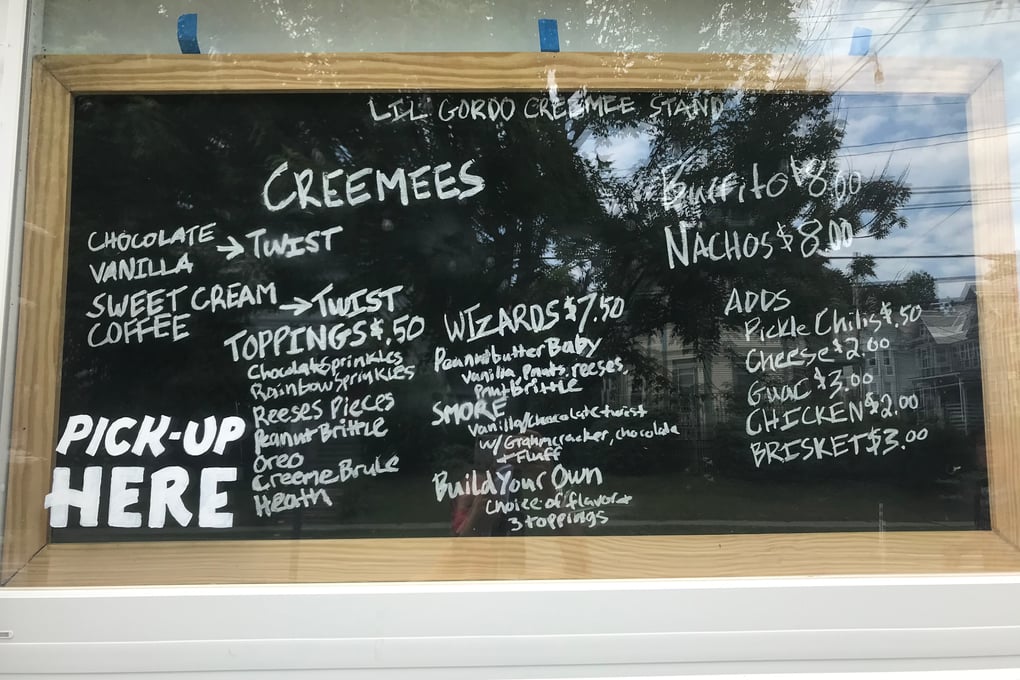 LIL' GORDO CREEMEE STAND
CREEMEES
CHOCOLATE → TWIST
VANILLA
SWEET CREAM → TWIST
COFFEE
TOPPINGS $.50
Chocolate Sprinkles
Rainbow Sprinkles
Reeses Pieces
Peanut Brittle
Oreo
Creeme Brule
Heath
PICK-UP
HERE
WIZARDS $7.50
Peanutbutter Baby
vanilla, pnuts, reeses,
pnut Brittle
SMORE
vanilla/chocolate twist
w/ Grahmcracker, chocolate
+ Fluff
Build Your Own
choice of flavor +
3 toppings
Burrito $8.00
NACHOS $8.00
ADDS
Pickle Chilis $.50
Cheese $2.00
Guac $3.00
CHICKEN $2.00
BRISKET $3.00